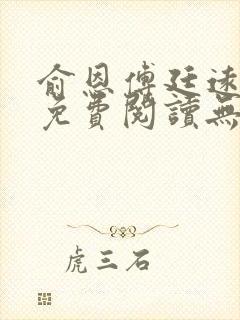 俞恩傅廷远
免費閱讀無
虎三石